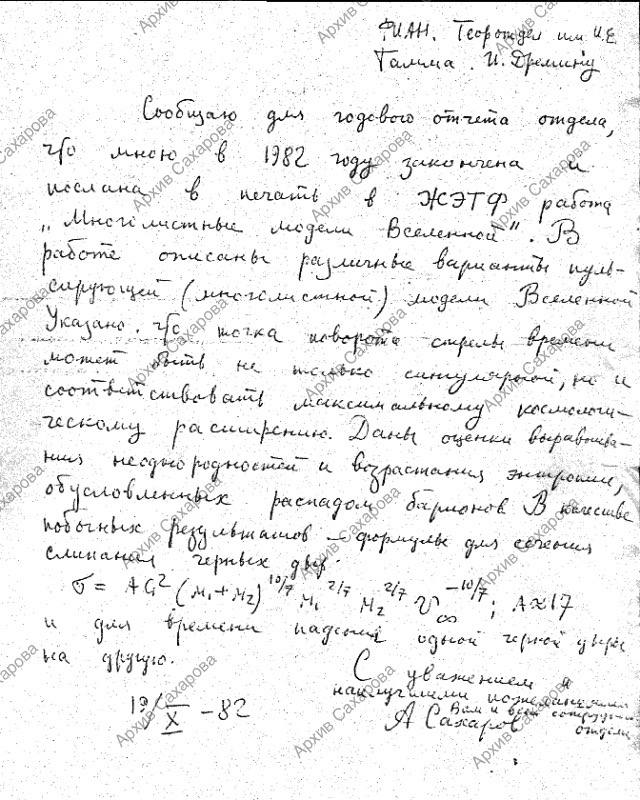 ФИАН. Теоротдел им. И.Е.
Тамма. И. Дремину
Сообщаю для годового отчета отдела,
что мною в 1982 году закончена и
послана в печать в ЖЭТФ работа
„Многолистные модели Вселенной". В
работе описаны различные варианты пуль-
сирующей (многолистной) модели Вселенной
Указано, что точка поворота стрелы времени
может быть не только сингулярной, но и
соответствовать максимальному космологи-
ческому расширению. Даны оценки выравнива-
ния неоднородностей и возрастания энтропии,
обусловленных распадом барионов В качестве
побочных результатов – формулы для сечения
слипания черных дыр:
σ = AG² (M₁+M₂)^10/7 M₁^2/7 M₂^2/7 V∞^-10/7; A≈17
и для времени падения одной черной дыры
на другую.
С уважением и
наилучшими пожеланиями
Вам и всем сотрудникам
отдела
А Сахаров
19/X – 82
Архив Сахарова